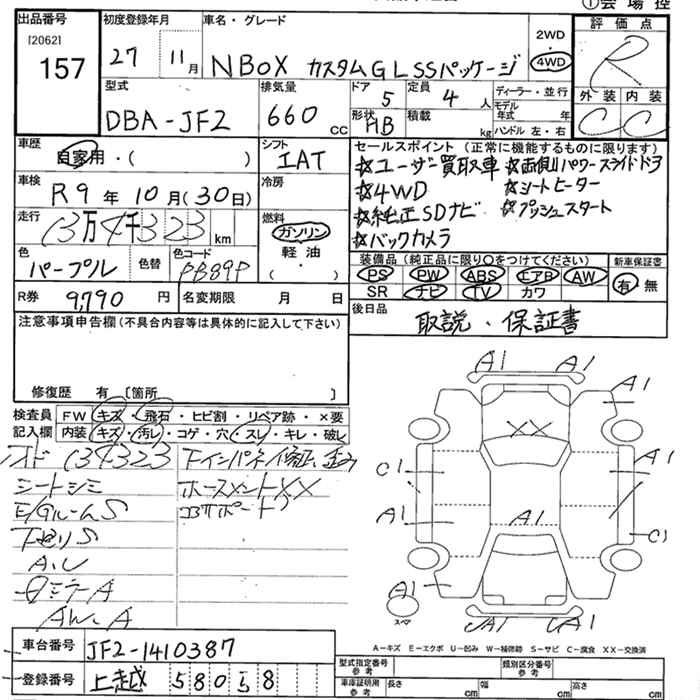 ①会場控
出品番号
[2062]
157
初度登録年月
27 11月
車名・グレード
NBOX カスタムGLSSパッケージ
2WD
・
4WD
評価点
R
外装 内装
C C
型式
DBA-JF2
排気量
660 cc
ドア
5
定員
4 人
形状
HB
積載
kg
ディーラー・並行
モデル
年式 年
ハンドル 左・右
車歴
自家用・( )
シフト
IAT
車検
R9年10月(30日)
冷房
走行
13万4千323 km
燃料
ガソリン
軽油
( )
色
パープル
色替
色コード
PB89P
R券 9,790 円
名変期限 月 日
セールスポイント (正常に機能するものに限ります)
☆ユーザー買取車 ☆両側パワースライドドア
☆4WD ☆シートヒーター
☆純正SDナビ ☆プッシュスタート
☆バックカメラ
装備品 (純正品に限り○をつけてください)
PS PW ABS エアB AW
SR ナビ TV カワ
新車保証書
有・無
後日品
取説・保証書
注意事項申告欄(不具合内容等は具体的に記入して下さい)
修復歴 有 [箇所 ]
検査員
記入欄
FW キズ・飛石・ヒビ割・リペア跡・×要
内装 キズ・汚レ・コゲ・穴・スレ・キレ・破レ
134323
シートシミ
E/GルームS
下回リS
A.L
AW.A
A1 A1
A1
XX
C1 A1
A1 A1 C1
A1
スペア
A1 A1
A-キズ E-エクボ U-凹み W-補修跡 S-サビ C-腐食 XX-交換済
車台番号 JF2-1410387
登録番号 上越 580 58
型式指定番号
参考
類別区分番号
参考
車庫証明用
参考
長さ cm 幅 cm 高さ cm